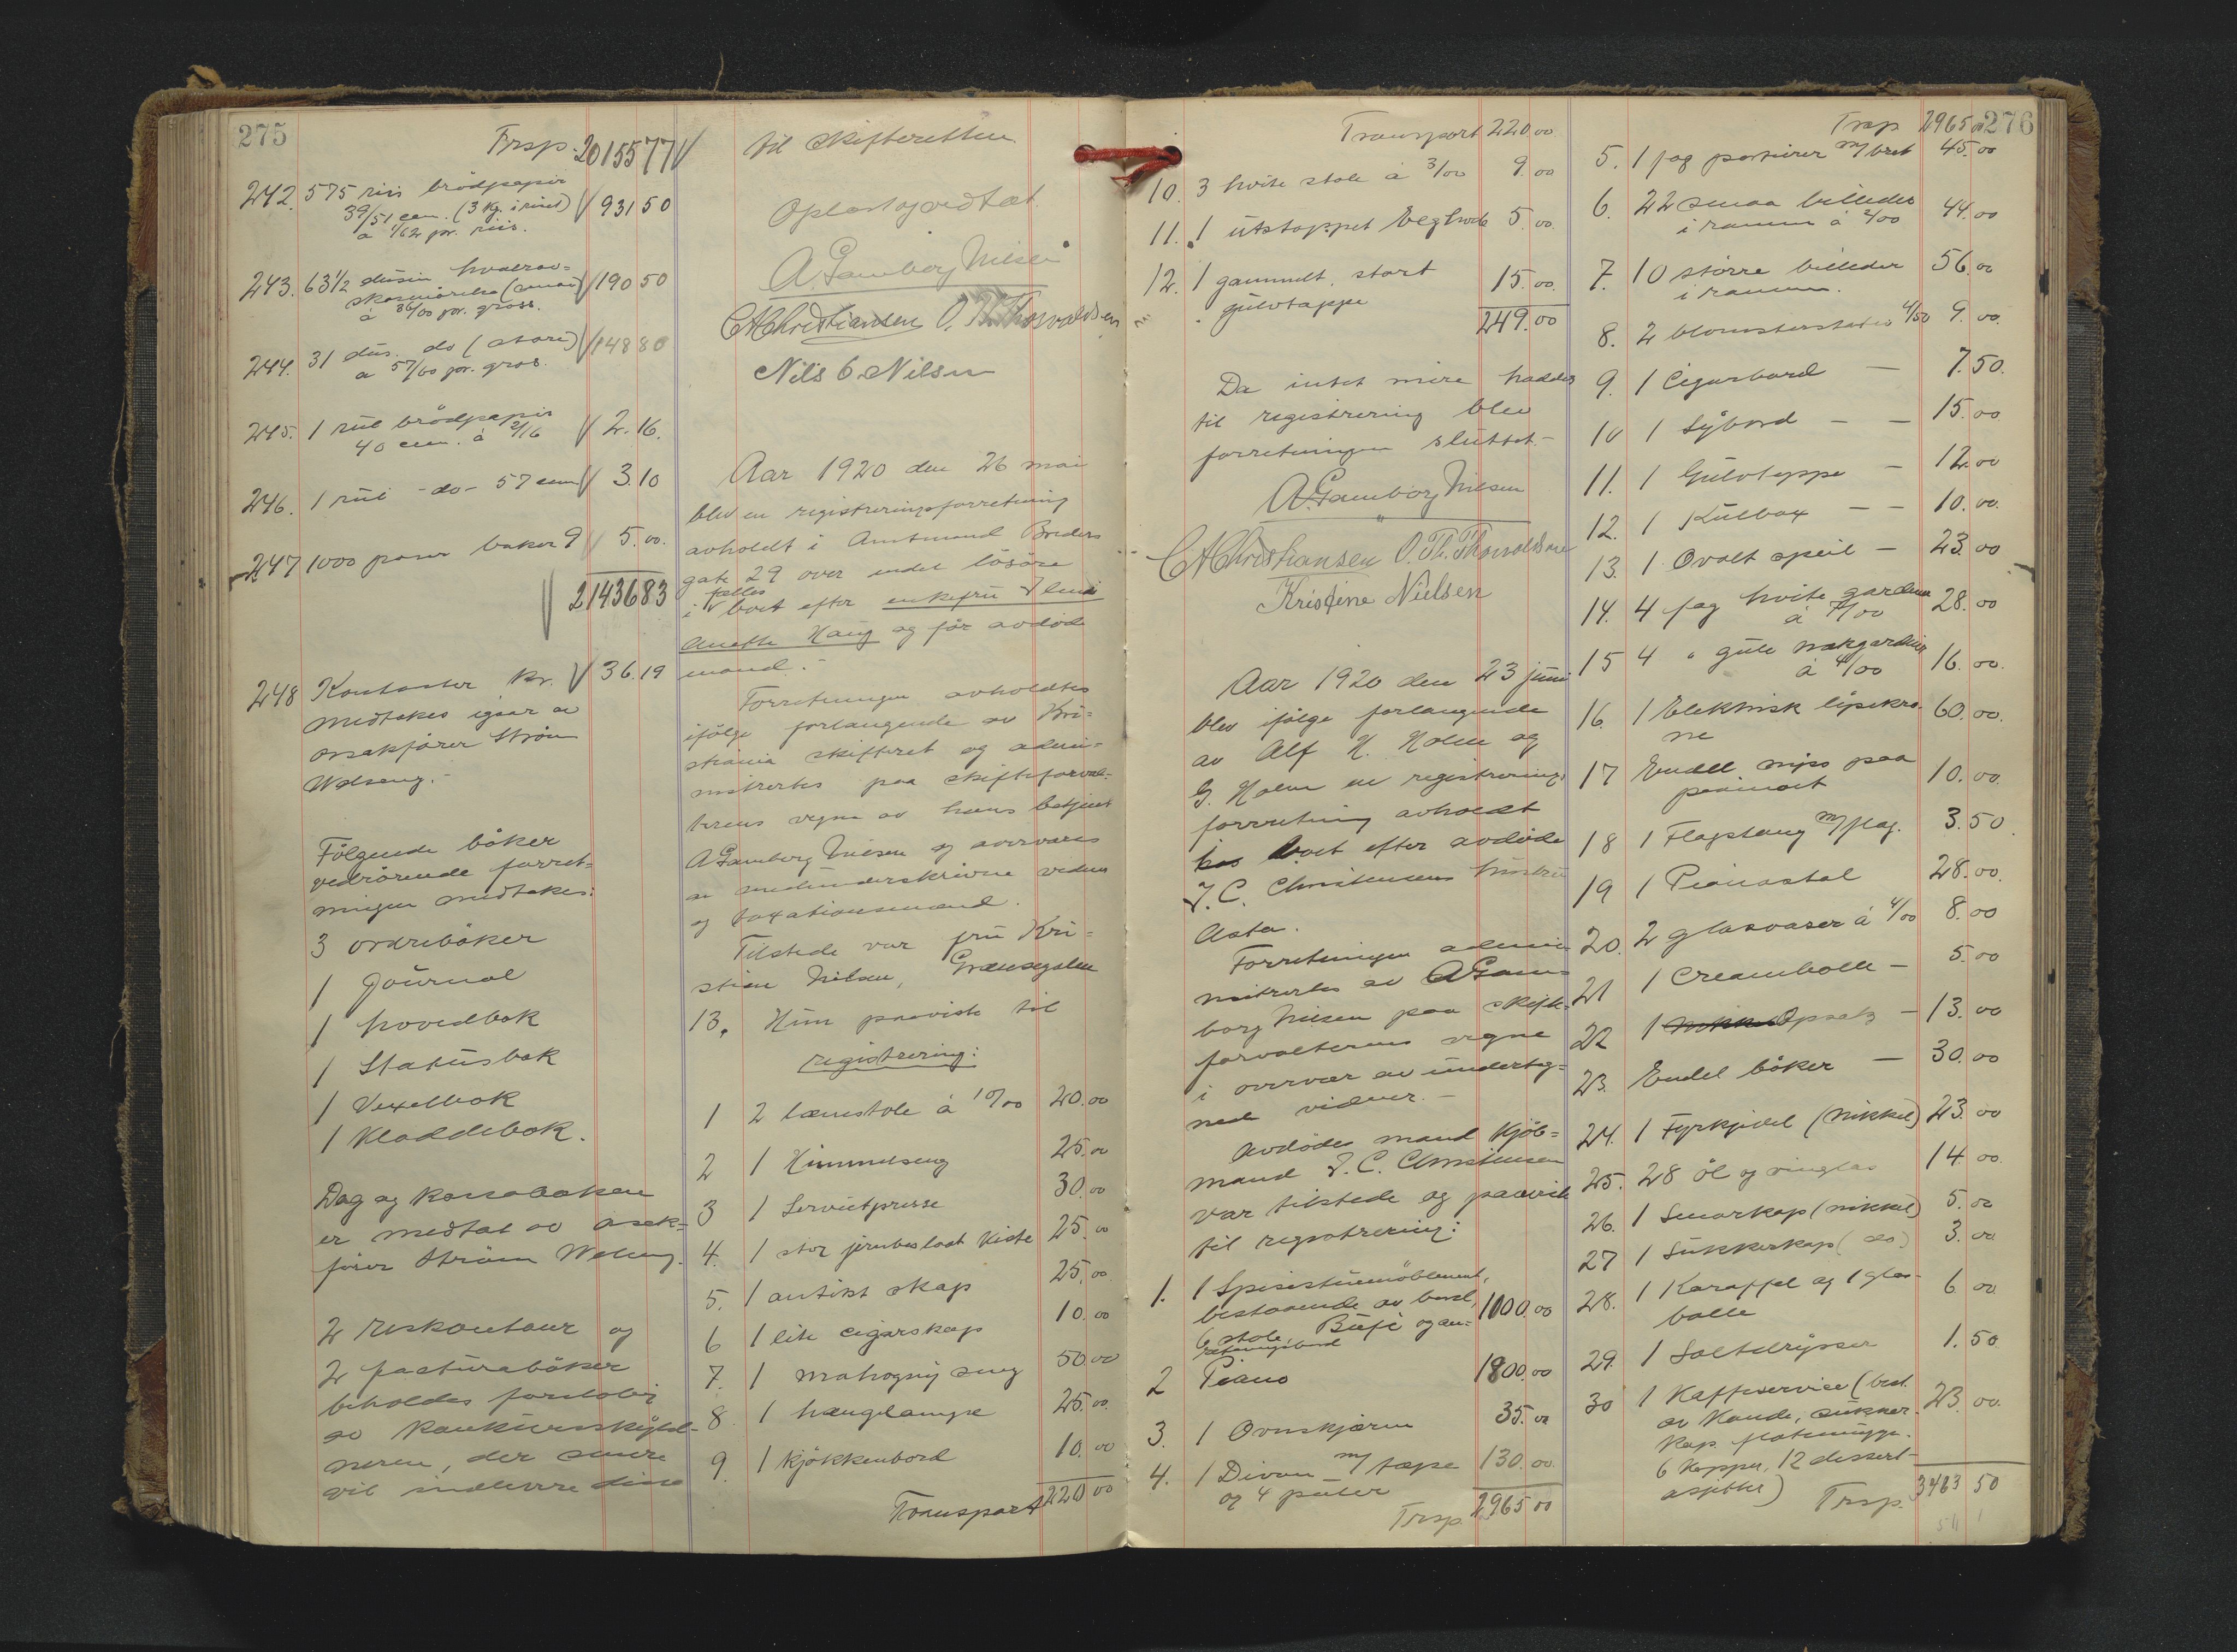 275
Trsp. 20155 77
242. 575 ris brödpapir
39/51 cem. (3 kg. i riset) 931 50
à 1/62 pr. ris.
243. 63 1/2 dusin
(smaa) 190 50
à 36/00 pr. gross.
244. 31 dus. do (store) 148 80
a 57/60 pr. gros.
245. 1 rul brödpapir
40 cem. à 2/16 2.16.
246. 1 rul -do- 57 cem 3.10
247 1000 poser baker 9 5.00.
21436 83
248 Kontanter kr. 36.19
medtakes igaar av
Ström
Følgende böker
vedrörende forret-
ningen medtakes:
3 ordrebøker
1 Journal
1 hovedbok
1 Statusbok
1 Vexelbok
1 Kladdebok.
Dag og kassaboken
er medtat av
fører Ström
2 reskontoer og
2 facturabøker
beholdes foreløbig
av konkursskyld-
neren, der senere
vil indlevere disse
til skifteretten
Oplæst og vedtat.
A. Gamborg Nilsen
C A Christiansen O. Th. Thorvaldsen
Nils C. Nilsen
Aar 1920 den 26 mai
blev en registreringsforretning
avholdt i Amtmand Breders
gate 29 over endel lösöre
fælles
i boet efter enkefru
Anette Haug og før avdøde
mand.-
Forretningen avholdtes
ifölge forlangende av Kri-
stiania skifteret og admi-
nistrertes paa skifteforval-
terens vegne av hans betjent
A Gamborg Nilsen og overværes
av medunderskrivne vidner
og taxationsmænd.
Tilstede var fru Kri-
stine Nilsen, Grænsegaten
13. Hun paaviste til
registrering:
1 2 lænestole à 10/00 20.00
2 1 Himmelseng 25.00
3 1 Servietpresse 30.00
4. 1 stor jernbeslaat kiste 25.00
5. 1 antikt skap 25.00
6 1 lite cigarskap 10.00
7. 1 mahogny seng 50.00
8 1 hængelampe 25.00
9. 1 kjøkkenbord 10.00
Transport 220 00
276
Transport 220 00
10. 3 hvite stole à 3/00 9.00
11. 1 utstoppet 5.00
12. 1 gammelt, stort 15.00.
gulvtæppe
249.00
Da intet mere hadde
til registrering blev
forretningen sluttet.-
A. Gamborg Nilsen
C A Christiansen O. Th. Thorvaldsen
Kristine Nielsen
Aar 1920 den 23 juni
blev ifølge forlangende
av Alf H. Holm og
G. Holm en registrerings
forretning avholdt
hos boet efter avdøde
J. C. Christensens hustru
Asta.
Forretningen admi-
nistrertes av A Gam-
borg Nilsen paa skifte-
forvalterens vegne
i overvær av underteg-
nede vidner.-
Avdødes mand Kjøb-
mand J. C. Christensen
var tilstede og paaviste
til registrering:
1. 1 Spisestuemøblement,
bestaaende av bord, 1000.00
6 stole, Büfe og an-
retningsbord
2 Piano 1800.00
3. 1 Ovnskjærm 35.00
4. 1 Divan m/ tæpe 130.00
og 4 puter
Trsp. 2965 00
Trsp 2965 00
5. 1 fag portierer m/ bret 45.00
6. 22 smaa billeder
i ramme à 2/00 44.00
7. 10 större billeder 56.00
i ramme.
8. 2 blomsterstativ 4/50 9.00.
9. 1 Cigarbord — 7.50.
10 1 Sybord — — 15.00
11. 1 Gulvteppe — 12.00
12. 1 Kulbox — — 10.00.
13. 1 Ovalt speil — 23.00
14. 4 fag hvite gardiner
à 7/00 28.00
15 4 " gule
à 4/00 16.00.
16. 1 Elektrisk lysekro- 60.00.
ne
17 Endel nips paa 10.00.
pianoet
18 1 Flagstang m/ flag. 3.50.
19 1 Pianostol 28.00.
20. 2 glasvaser à 4/00 8.00
21 1 Creambolle — 5.00
22 1 Opsats — 13.00
23. Endel böker — 30.00
24. 1 Fyrkjedel (nikkel) 23.00
25. 28 öl og vinglas 14 00
26. 1 Smørkop (nikkel) 5.00
27 1 Sukkerkop (do) 3.00
28. 1 Karaffel og 1 glas- 6 00
bolle
29. 1 Saltdrysser 1.50
30 1 Kaffeservice (best.
av Kande, sukker- 23.00.
kop, fløtemugge.
6 kopper, 12 dessert-
asjetter)
Trsp. 3463 50